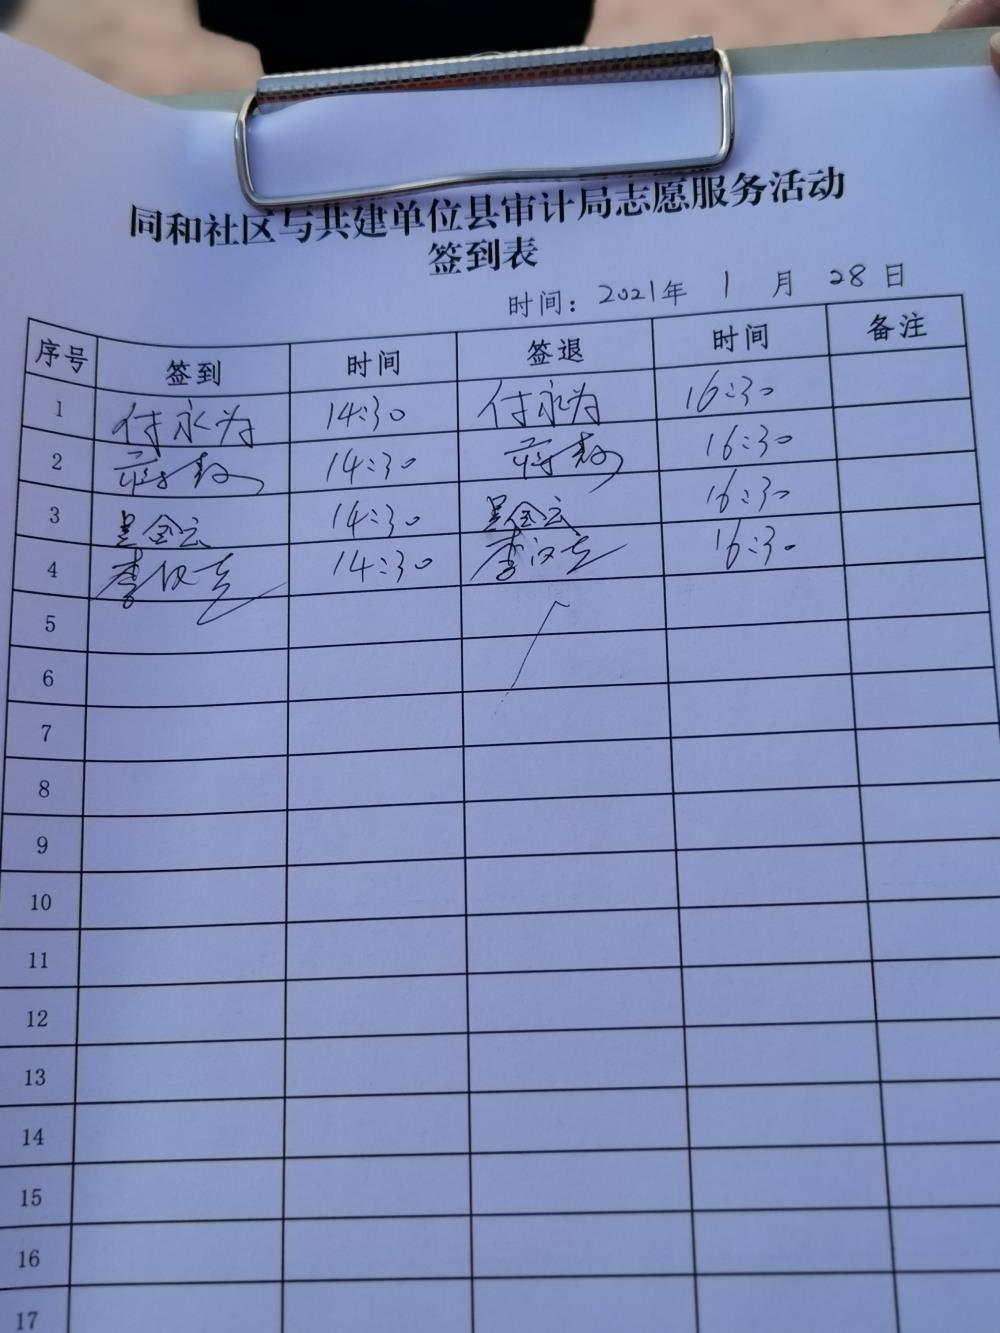 同和社区与共建单位县审计局志愿服务活动
签到表
时间：2021年 1 月 28 日
序号 签到 时间 签退 时间 备注
1 付永为 14:30 付永为 16:30
2 14:30 16:30
3 吴金云 14:30 吴金云 16:30
4 李汉 14:30 李汉 16:30
5
6
7
8
9
10
11
12
13
14
15
16
17